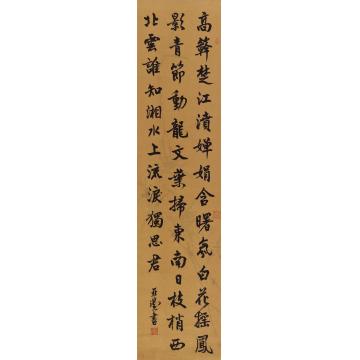 高簳楚江濆嬋娟含曙氛白花搖鳳
影青節動龍文葉掃東南日枝梢西
北雲誰知湘水上流淚獨思君
書